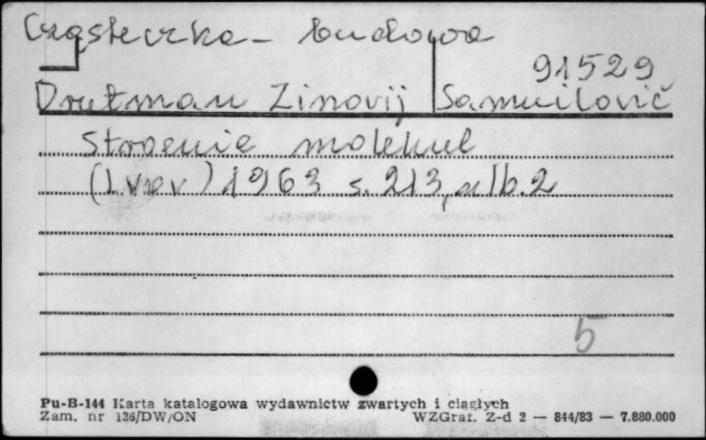 Cząsteczka - budowa
91529
Drutman Zinovij Samuilovič
Stroenie molekul
(Lvov) 1963 s. 213, alb. 2
5
Pu-B-144 Karta katalogowa wydawnictw zwartych i ciągłych
Zam. nr 136/DW/ON WZGraf. Z-d 2 — 844/83 — 7.880.000